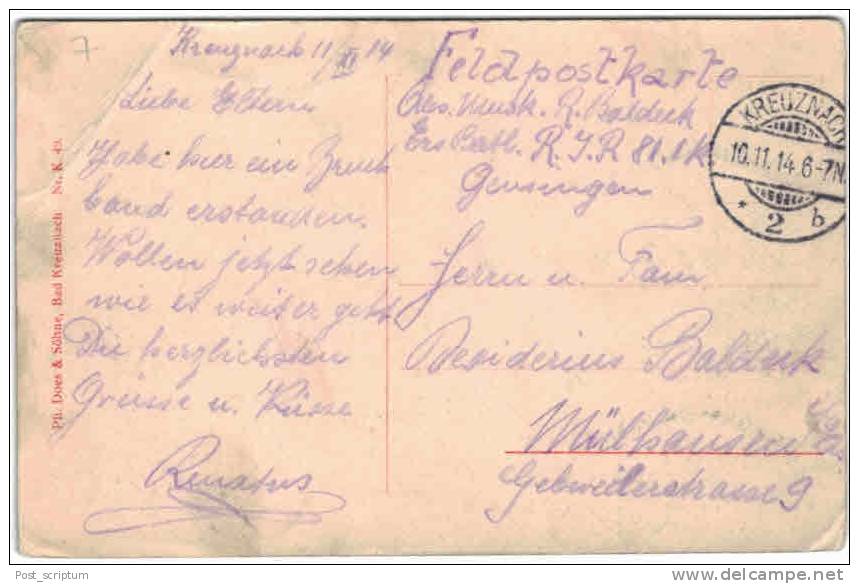 7
Kreuznach 11/XI 14
Liebe Eltern
Habe hier ein Bruch
band erstanden.
Wollen jetzt sehen
wie es weiter geht
Die herzlichsten
Grüsse u. Küsse
Renatus
Ph. Does & Söhne, Bad Kreuznach Nr. K. 49.
Feldpostkarte
Abs. Musk. R. Baldeck
Ers Batl. R. I. R 81. 1 K
Gensingen
KREUZNACH
10.11.14 6-7N.
* 2 b
Herrn u. Fam.
Desiderius Baldeck
Mülhausen
Gebweilerstrasse 9
Post_scriptum
www.delcampe.net